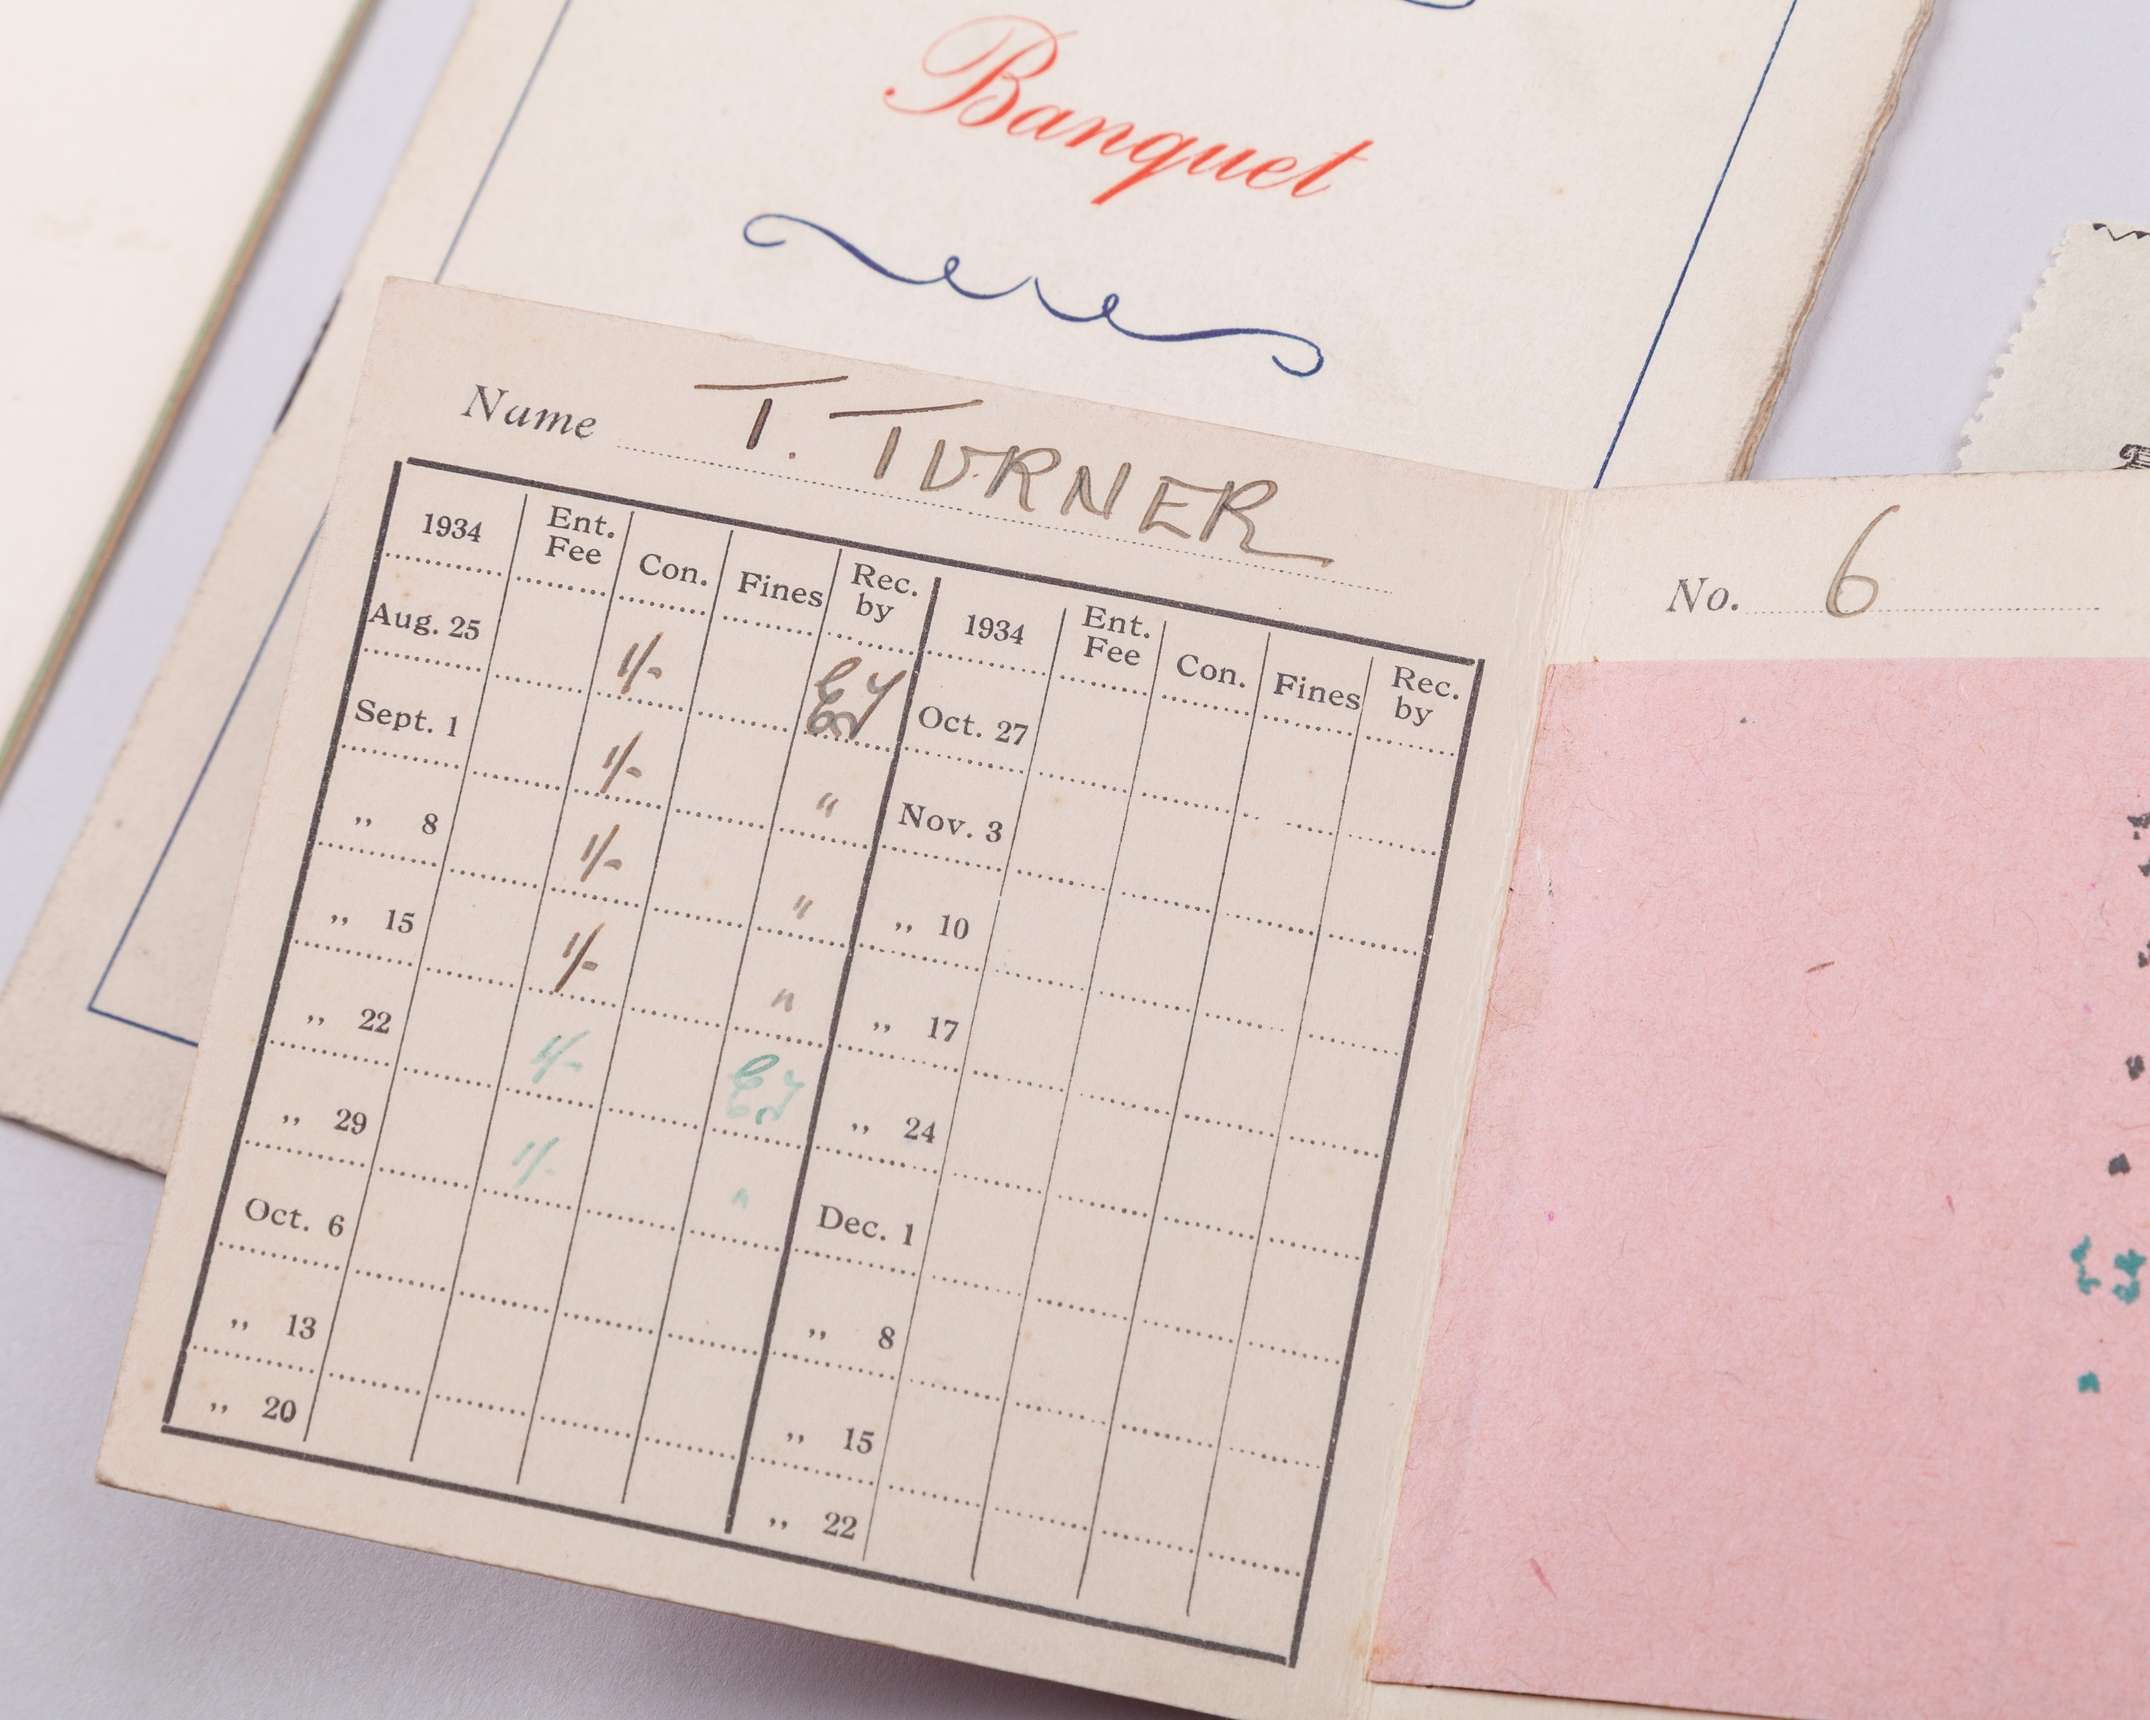 Banquet
Name T. TURNER
No. 6
1934 Ent. Fee Con. Fines Rec. by 1934 Ent. Fee Con. Fines Rec. by
Aug. 25 1/- EJ Oct. 27
Sept. 1 1/- " Nov. 3
„ 8 1/- " „ 10
„ 15 1/- " „ 17
„ 22 1/- EJ „ 24
„ 29 1/- " Dec. 1
Oct. 6 „ 8
„ 13 „ 15
„ 20 „ 22